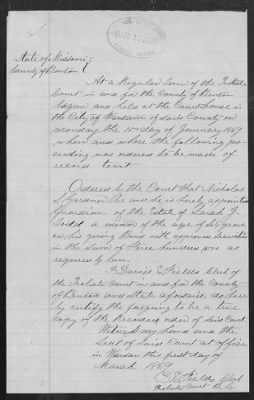 State of Missouri
County of Benton
At a Regular Term of the Probate
Court in and for the County of Benton
begun and held at the Courthouse in
the City of Warsaw of said County on
monday the 11th day of January 1869
when and where the following pro-
ceeding was ordered to be made of
record towit
Ordered by the Court that Nicholas
S. Gardner be and he is hereby appointed
Guardian of the Estate of Sarah J.
Todd a minor of the age of years
he giving Bond with approved Securities
in the Sum of Five hundred as
required by law.
I Daniel E Fields Clerk of
the Probate Court in and for the County
of Benton and State aforesaid do here
by certify the foregoing to be a true
Copy of the Recorded order of said Court
Witness my hand and the
Seal of said Court at office
in Warsaw this first day of
March 1869
D. E. Fields Clerk
Probate Court B. Co.